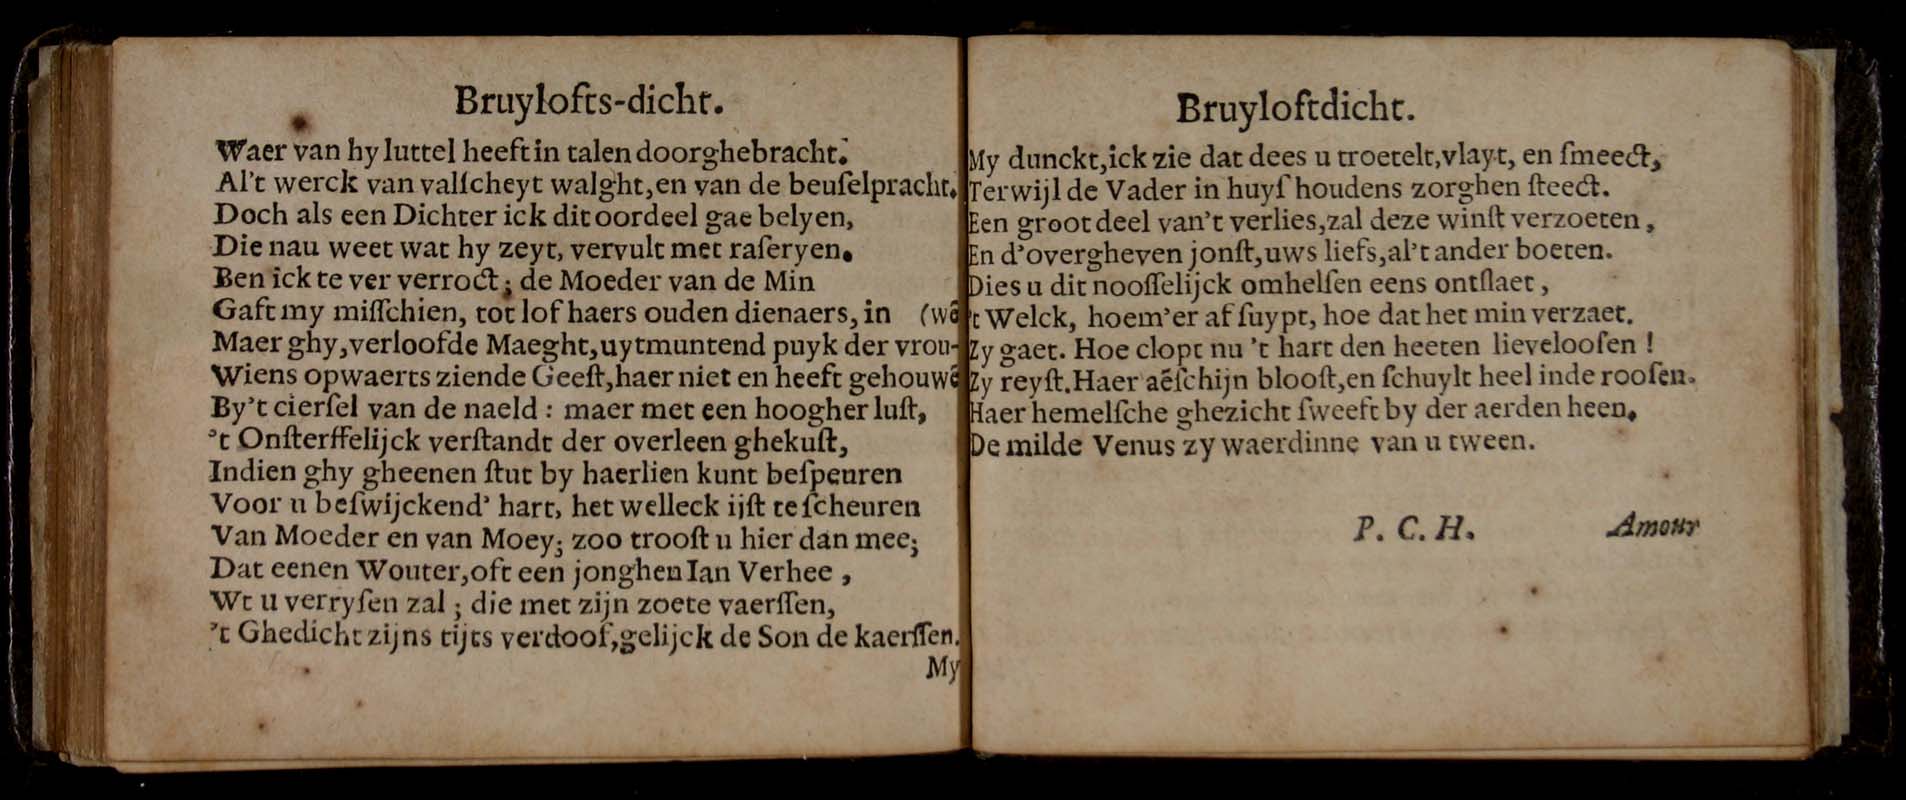 Bruylofts-dicht.
Waer van hy luttel heeft in talen doorghebracht.
Al't werck van valſcheyt walght, en van de beuſelpracht.
Doch als een Dichter ick dit oordeel gae belyen,
Die nau weet wat hy zeyt, vervult met raſeryen.
Ben ick te ver verroct; de Moeder van de Min
Gaft my miſſchien, tot lof haers ouden dienaers, in (wē
Maer ghy, verloofde Maeght, uytmuntend puyk der vrou-
Wiens opwaerts ziende Geeſt, haer niet en heeft gehouwē
By't cierſel van de naeld : maer met een hoogher luſt,
't Onſterffelijck verſtandt der overleen ghekuſt,
Indien ghy gheenen ſtut by haerlien kunt beſpeuren
Voor u beſwijckend' hart, het welleck ijſt te ſcheuren
Van Moeder en van Moey; zoo trooſt u hier dan mee;
Dat eenen Wouter, oft een jonghen Ian Verhee ,
Wt u verryſen zal ; die met zijn zoete vaerſſen,
't Ghedicht zijns tijts verdoof, gelijck de Son de kaerſſen.
My
Bruyloftdicht.
My dunckt, ick zie dat dees u troetelt, vlayt, en ſmeect,
Terwijl de Vader in huyſ houdens zorghen ſteect.
Een groot deel van't verlies, zal deze winſt verzoeten ,
En d'overgheven jonſt, uws liefs, al't ander boeten.
Dies u dit nooſſelijck omhelſen eens ontſlaet ,
't Welck, hoem'er af ſuypt, hoe dat het min verzaet.
Zy gaet. Hoe clopt nu 't hart den heeten lievelooſen !
Zy reyſt. Haer aēſchijn blooſt, en ſchuylt heel inde rooſen.
Haer hemelſche ghezicht ſweeft by der aerden heen.
De milde Venus zy waerdinne van u tween.
P. C. H. Amour